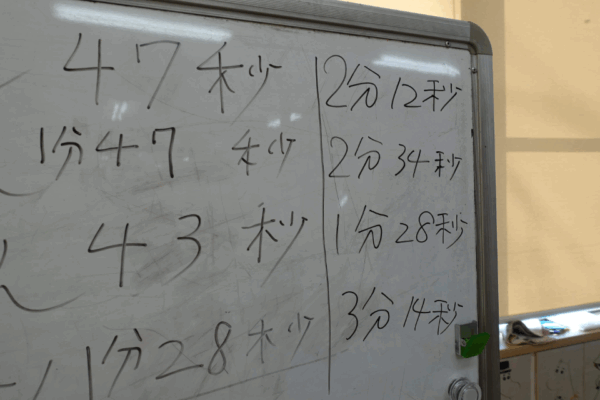 47秒
1分47秒
43秒
1分28秒
2分12秒
2分34秒
1分28秒
3分14秒